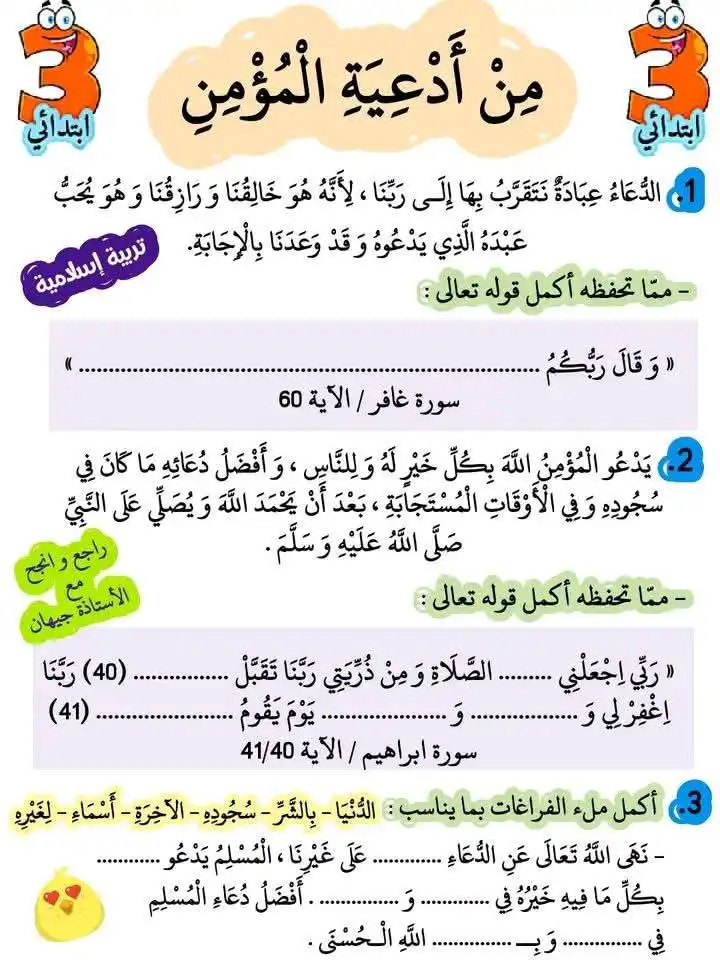 3 ابتدائي
مِنْ أَدْعِيَةِ الْمُؤْمِنِ
3 ابتدائي
1. الدُّعَاءُ عِبَادَةٌ نَتَقَرَّبُ بِهَا إِلَــى رَبِّنَا ، لِأَنَّهُ هُوَ خَالِقُنَا وَ رَازِقُنَا وَ هُوَ يُحَبُّ
عَبْدَهُ الَّذِي يَدْعُوهُ وَ قَدْ وَعَدَنَا بِالْإِجَابَةِ.
تربية إسلامية
- ممّا تحفظه أكمل قوله تعالى :
« وَ قَالَ رَبُّكُمُ ........................................................................ »
سورة غافر / الآية 60
2. يَدْعُو الْمُؤْمِنُ اللَّهَ بِكُلِّ خَيْرٍ لَهُ وَ لِلنَّاسِ ، وَ أَفْضَلُ دُعَائِهِ مَا كَانَ فِي
سُجُودِهِ وَ فِي الْأَوْقَاتِ الْمُسْتَجَابَةِ ، بَعْدَ أَنْ يَحْمَدَ اللَّهَ وَ يُصَلِّي عَلَى النَّبِيِّ
صَلَّى اللَّهُ عَلَيْهِ وَ سَلَّمَ .
راجع و انجح
مع
الأستاذة جيهان
- ممّا تحفظه أكمل قوله تعالى :
« رَبِّي اِجْعَلْنِي ......... الصَّلَاةِ وَ مِنْ ذُرِّيَتِي رَبَّنَا تَقَبَّلْ ................ (40) رَبَّنَا
اِغْفِرْ لِي وَ .................. وَ ..................... يَوْمَ يَقُومُ ....................... (41)
سورة ابراهيم / الآية 41/40
3. أكمل ملء الفراغات بما يناسب : الدُّنْيَا - بِالشَّرِّ - سُجُودِهِ - الآخِرَةِ - أَسْمَاءِ - لِغَيْرِهِ
- نَهَى اللَّهُ تَعَالَى عَنِ الدُّعَاءِ ............ عَلَى غَيْرِنَا ، الْمُسْلِمُ يَدْعُو ...........
بِكُلِّ مَا فِيهِ خَيْرُهُ فِي ............ وَ .............. . أَفْضَلُ دُعَاءِ الْمُسْلِمِ
فِي .............. وَ بِــ .............. اللَّهِ الْـحُسْنَى .